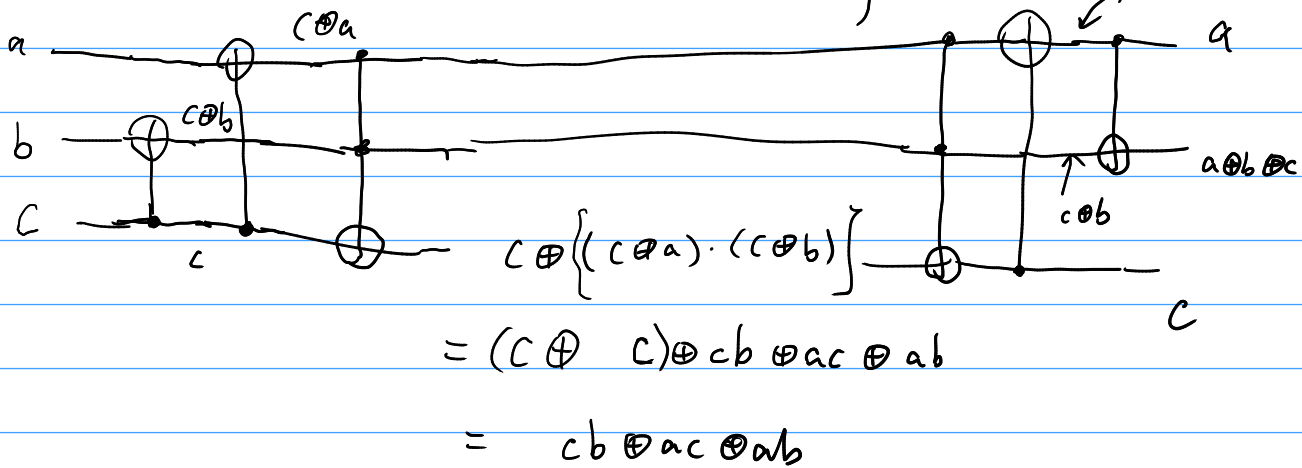 c⊕a
a
a
b
c⊕b
a⊕b⊕c
c⊕b
C
c
c⊕{(c⊕a)·(c⊕b)}
C
= (C⊕ C)⊕cb⊕ac⊕ab
= cb⊕ac⊕ab